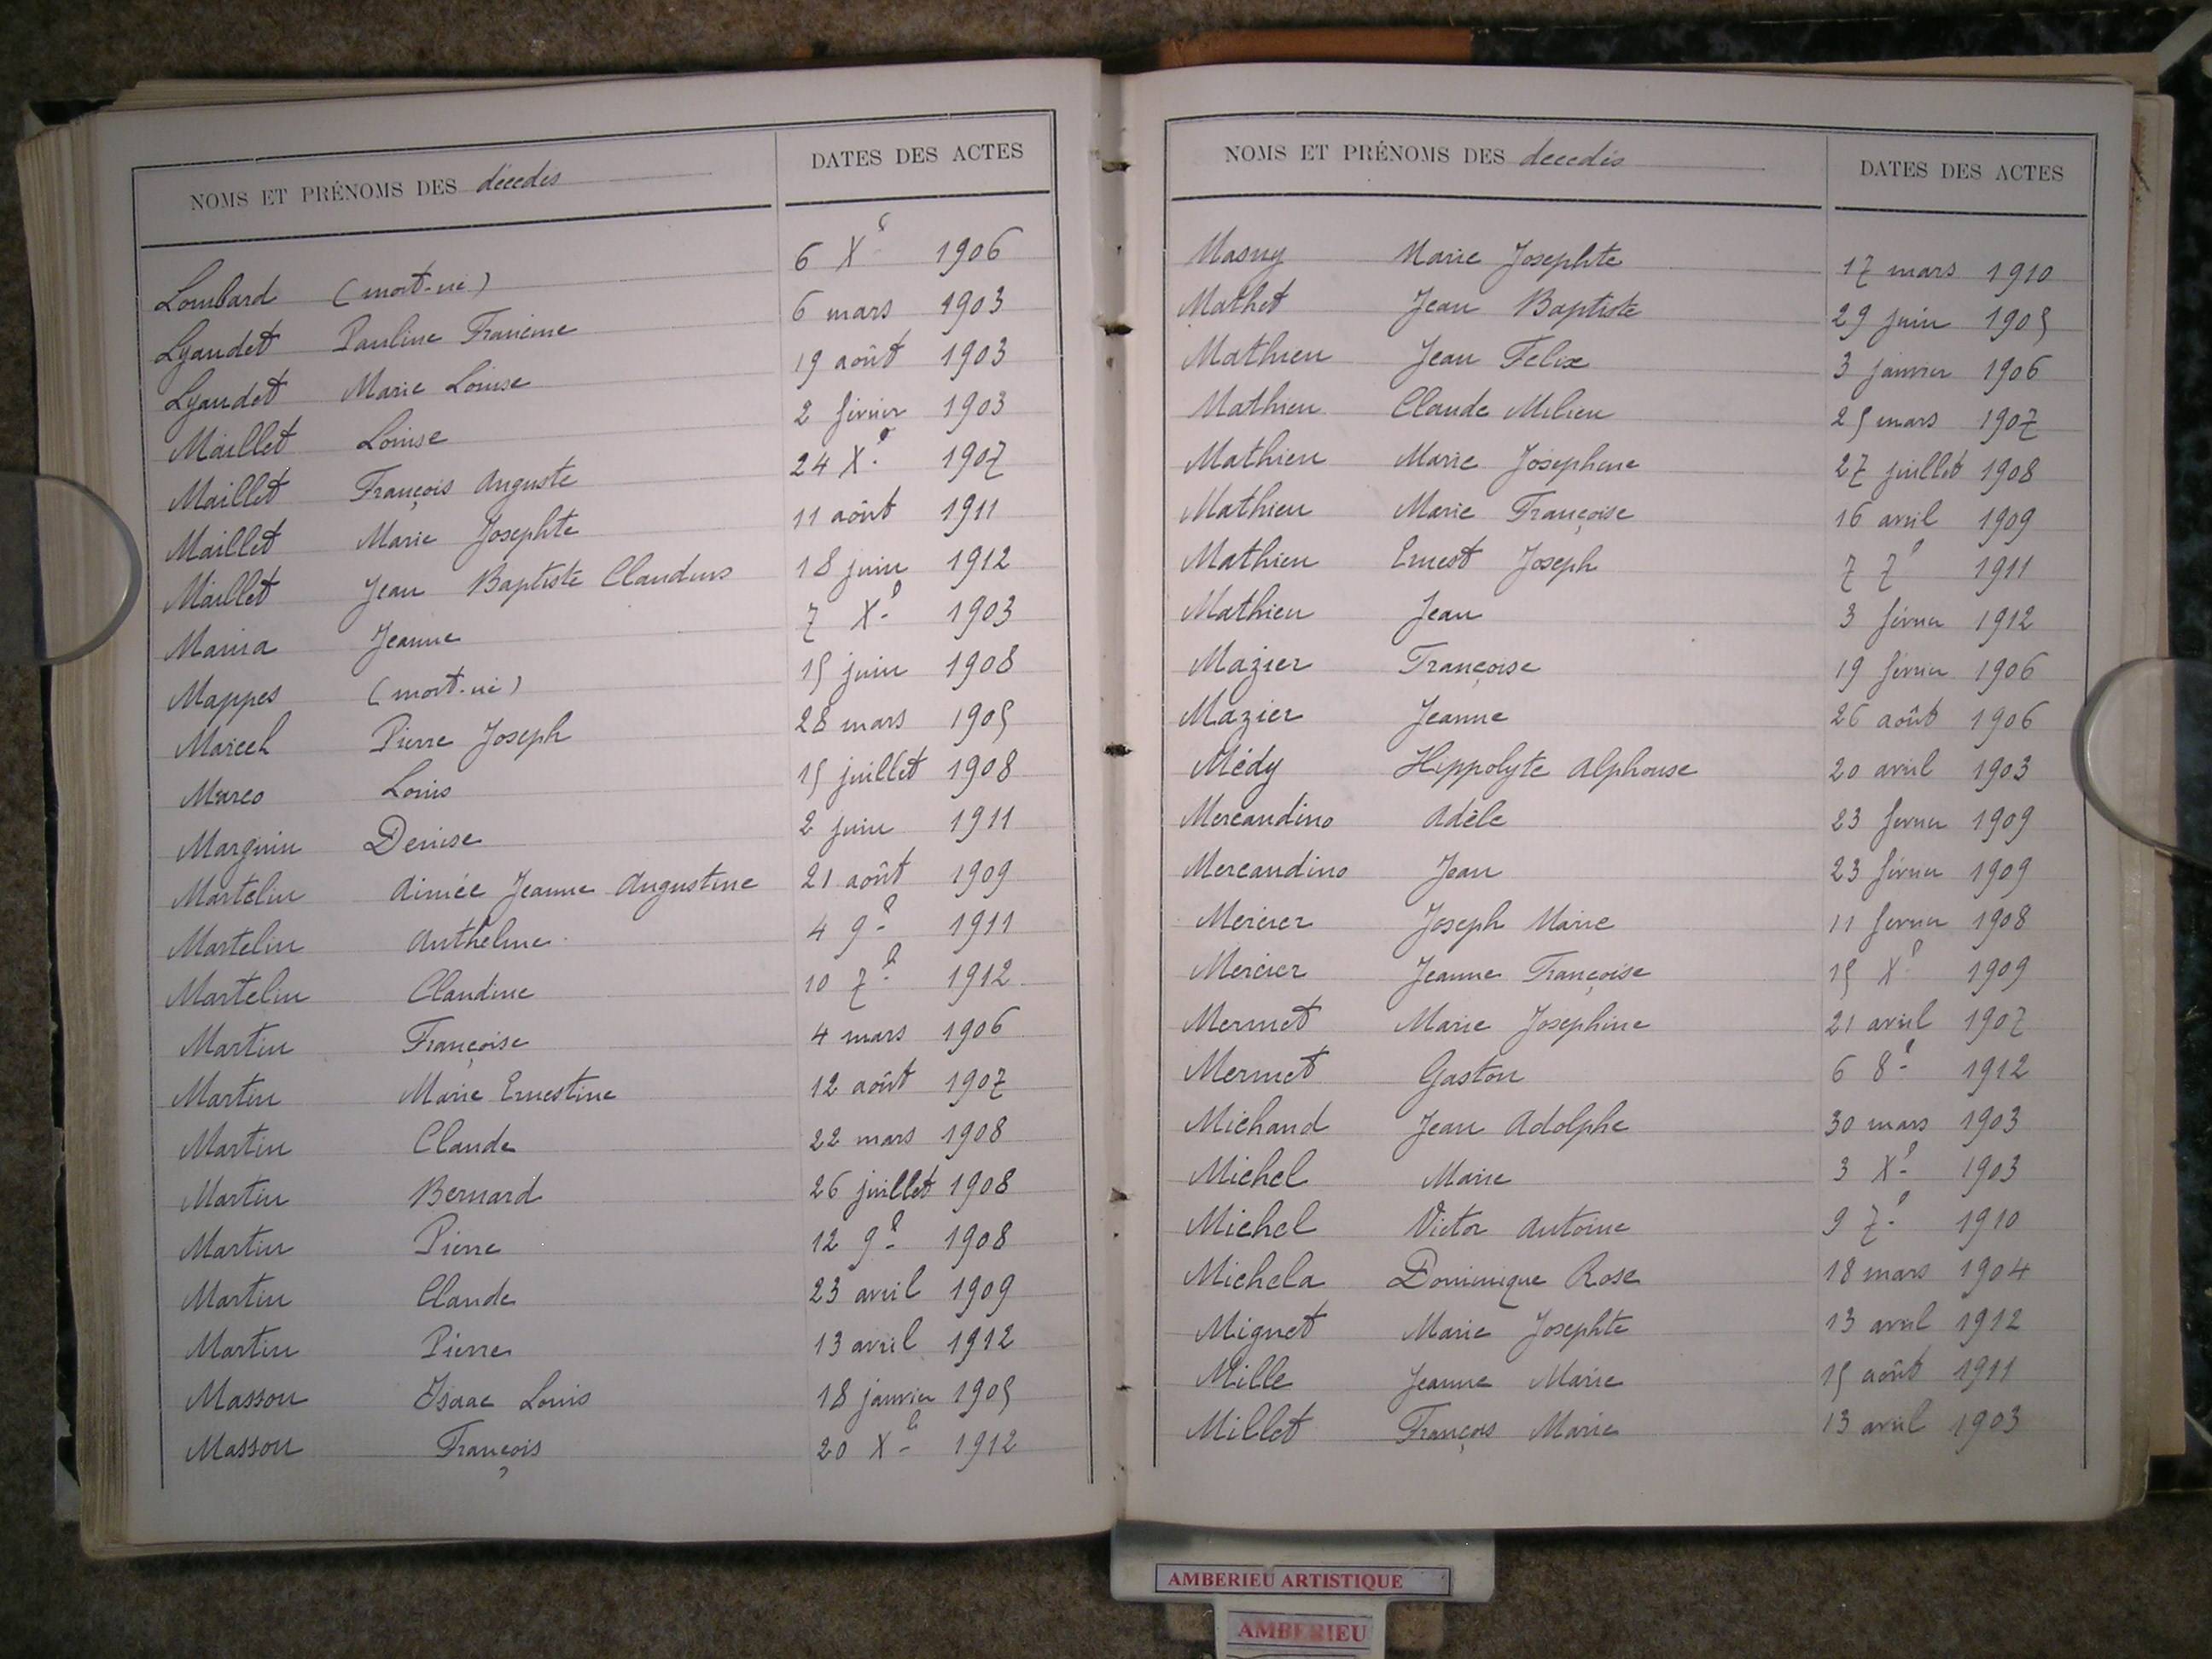 NOMS ET PRÉNOMS DES décédés DATES DES ACTES
Lombard (mort-né) 6 Xe 1906
Lyaudet Pauline Francine 6 mars 1903
Lyaudet Marie Louise 19 août 1903
Maillet Louise 2 février 1903
Maillet François Auguste 24 Xe 1907
Maillet Marie Josephte 11 août 1911
Maillet Jean Baptiste Claudius 18 juin 1912
Jeanne 7 Xe 1903
Mappes (mort-né) 15 juin 1908
Marcel Pierre Joseph 28 mars 1905
Marco Louis 15 juillet 1908
Marguin Denise 2 juin 1911
Martelin Aimée Jeanne Augustine 21 août 1909
Martelin Anthelme 4 9e 1911
Martelin Claudine 10 7e 1912
Martin Françoise 4 mars 1906
Martin Marie Ernestine 12 août 1907
Martin Claude 22 mars 1908
Martin Bernard 26 juillet 1908
Martin Pierre 12 9e 1908
Martin Claude 23 avril 1909
Martin Pierre 13 avril 1912
Masson Isaac Louis 18 janvier 1905
Masson François 20 Xe 1912
NOMS ET PRÉNOMS DES décédés DATES DES ACTES
Masny Marie Josephte 17 mars 1910
Mathet Jean Baptiste 29 juin 1905
Mathieu Jean Felix 3 janvier 1906
Mathieu Claude Milieu 25 mars 1907
Mathieu Marie Josephine 27 juillet 1908
Mathieu Marie Françoise 16 avril 1909
Mathieu Ernest Joseph 7 7e 1911
Mathieu Jean 3 février 1912
Mazier Françoise 19 février 1906
Mazier Jeanne 26 août 1906
Médy Hippolyte Alphonse 20 avril 1903
Mercandino Adèle 23 février 1909
Mercandino Jean 23 février 1909
Mercier Joseph Marie 11 février 1908
Mercier Jeanne Françoise 15 Xe 1909
Mermet Marie Josephine 21 avril 1907
Mermet Gaston 6 8e 1912
Michaud Jean Adolphe 30 mars 1903
Michel Marie 3 Xe 1903
Michel Victor Antoine 9 7e 1910
Michela Dominique Rose 18 mars 1904
Mignet Marie Josephte 13 avril 1912
Mille Jeanne Marie 15 août 1911
Millet François Marie 13 avril 1903
AMBERIEU ARTISTIQUE
AMBERIEU